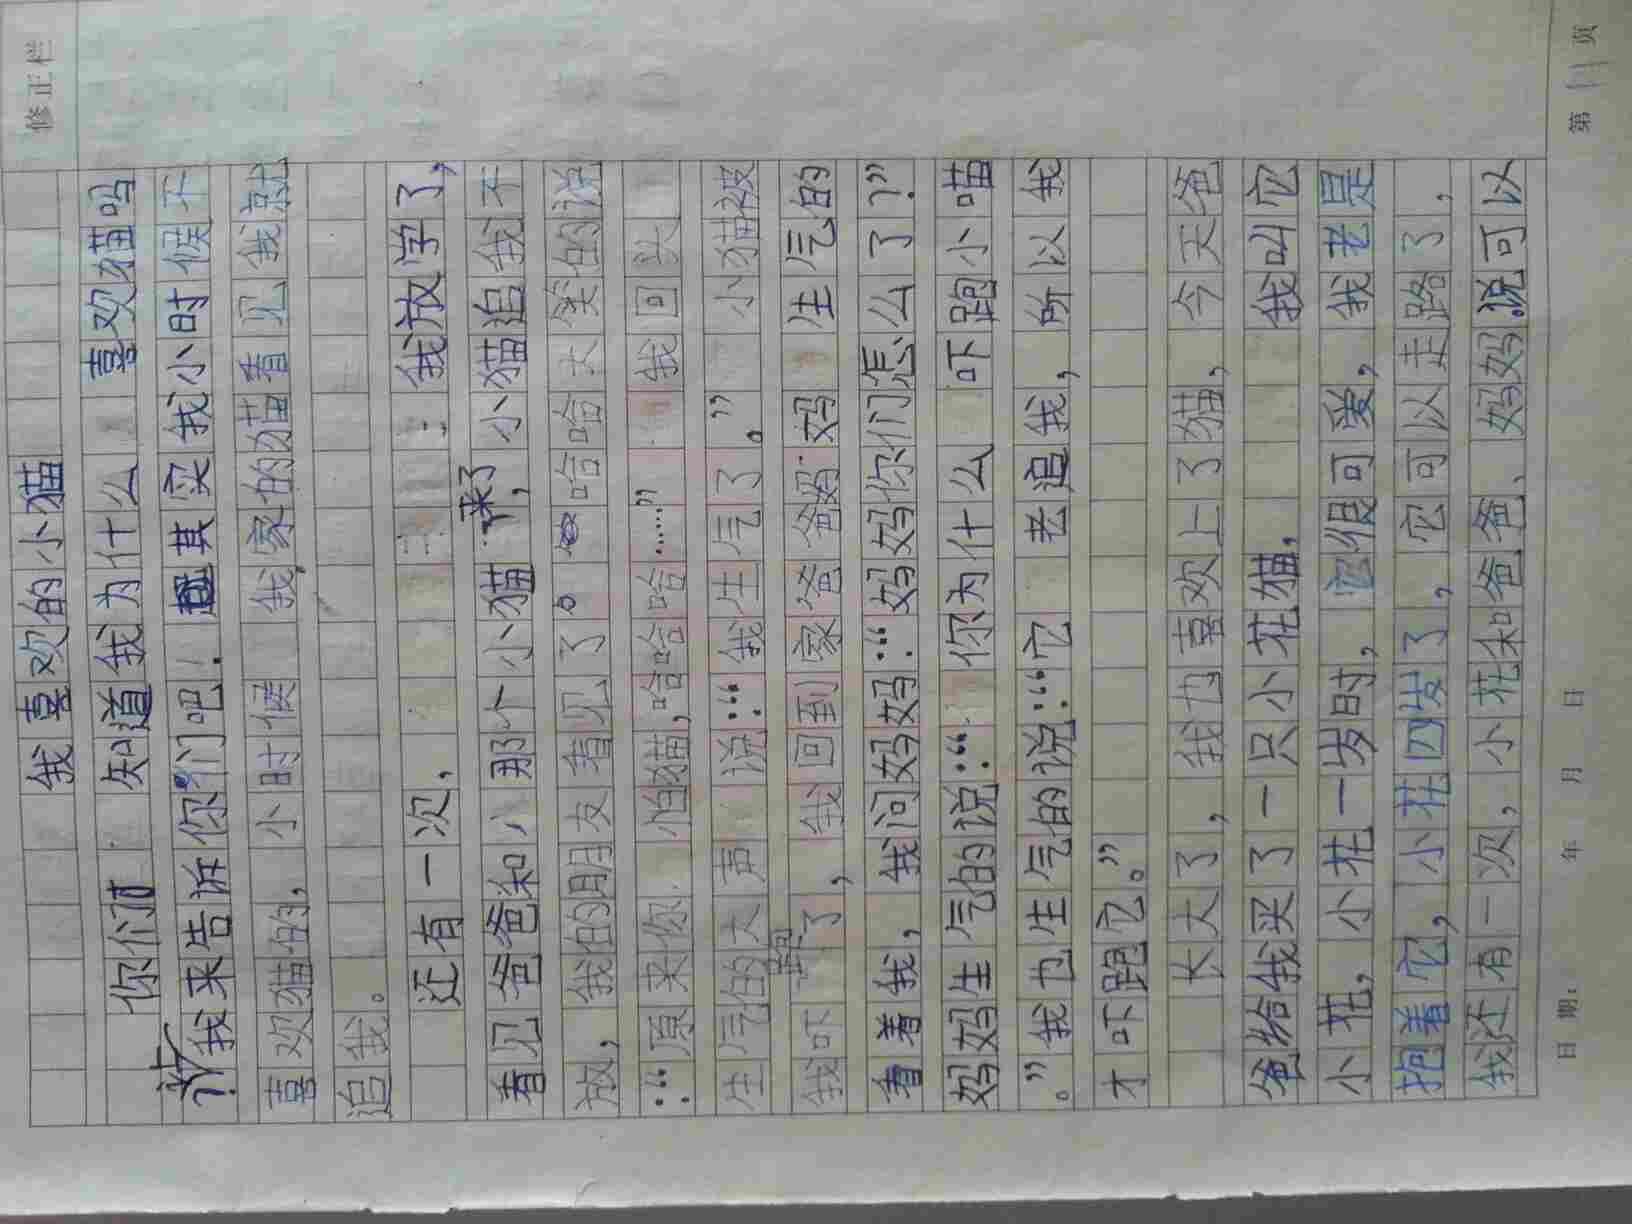 修正栏
我喜欢的小猫
你们 知道我为什么 喜欢猫吗
?我来告诉你们吧! 其实我小时候不
喜欢猫的,小时候 我家的猫看见我就
追我。
还有一次, 我放学了,
看见爸爸和 那个小猫来了,小猫追我不
放,我的朋友看见了。 哈哈大笑的说
:“原来你 怕猫,哈哈哈哈……” 我回头
生气的大声 说:“我生气了。” 小猫被
我吓跑了,我回到家爸爸妈妈 生气的
看着我,我问妈妈:“妈妈你们怎么了?”
妈妈生气的说:“你为什么 吓跑小喵
。”我也生气的说:“它 老追我,所以我
才吓跑它。”
长大了,我也喜欢上了猫,今天爸
爸给我买了一只小花猫, 我叫它
小花,小花一岁时,它很可爱,我老是
抱着它,小花四岁了,它可以走路了,
我还有一次,小花和爸爸、妈妈说可以
日期: 年 月 日
第 页